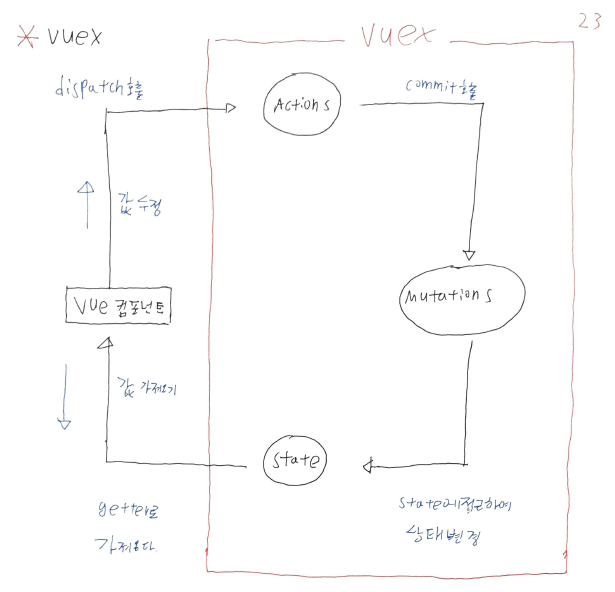 23
* vuex
vuex
dispatch호출
Actions
commit호출
값 수정
vue 컴포넌트
Mutations
값 가져오기
state
getter로
가져온다
state에접근하여
상태변경